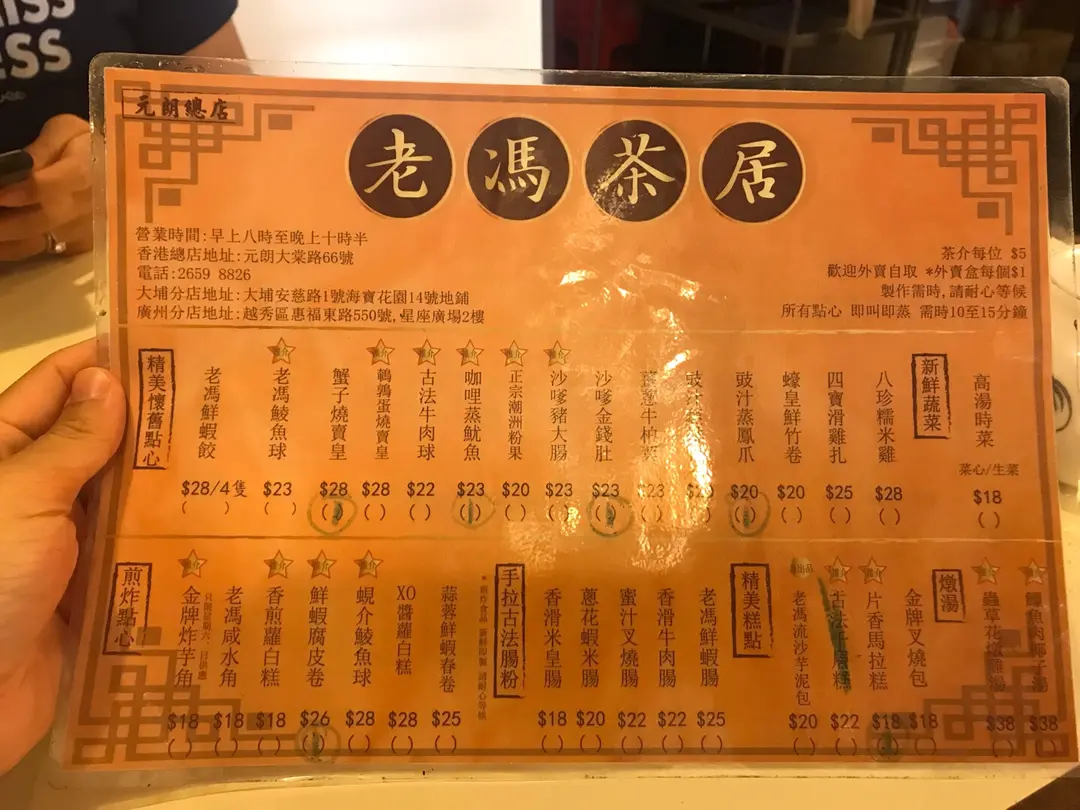 ESS
元朗總店
老馮茶居
營業時間:早上八時至晚上十時半
香港總店地址:元朗大棠路66號
電話:2659 8826
大埔分店地址:大埔安慈路1號海寶花園14號地鋪
廣州分店地址:越秀區惠福東路550號,星座廣場2樓
茶介每位 $5
歡迎外賣自取 *外賣盒每個$1
製作需時,請耐心等候
所有點心 即叫即蒸 需時10至15分鐘
精美懷舊點心
老馮鮮蝦餃 $28/4隻 ( )
老馮鯪魚球 $23 ( )
蟹子燒賣皇 $28 ( )
鵪鶉蛋燒賣皇 $28 ( )
古法牛肉球 $22 ( )
咖哩蒸魷魚 $23 ( )
正宗潮洲粉果 $20 ( )
沙嗲豬大腸 $23 ( )
沙嗲金錢肚 $23 ( )
牛柏葉 $23 ( )
豉汁
豉汁蒸鳳爪 $20 ( )
蠔皇鮮竹卷 $20 ( )
四寶滑雞扎 $25 ( )
八珍糯米雞 $28 ( )
新鮮蔬菜
高湯時菜
菜心/生菜
$18 ( )
煎炸點心
金牌炸芋角 $18 ( )
只限星期六、日供應
老馮咸水角 $18 ( )
香煎蘿白糕 $18 ( )
鮮蝦腐皮卷 $26 ( )
蜆介鯪魚球 $28 ( )
XO醬蘿白糕 $28 ( )
蒜蓉鮮蝦春卷 $25 ( )
*煎炸食品 新鮮即製 請耐心等候
手拉古法腸粉
香滑米皇腸 $18 ( )
蔥花蝦米腸 $20 ( )
蜜汁叉燒腸 $22 ( )
香滑牛肉腸 $22 ( )
老馮鮮蝦腸 $25 ( )
精美糕點
老馮流沙芋泥包 $20 ( )
古法千層糕 $22 ( )
片香馬拉糕 $18 ( )
金牌叉燒包 $18 ( )
燉湯
蟲草花燉雞湯 $38 ( )
魚肉椰子湯 $38 ( )